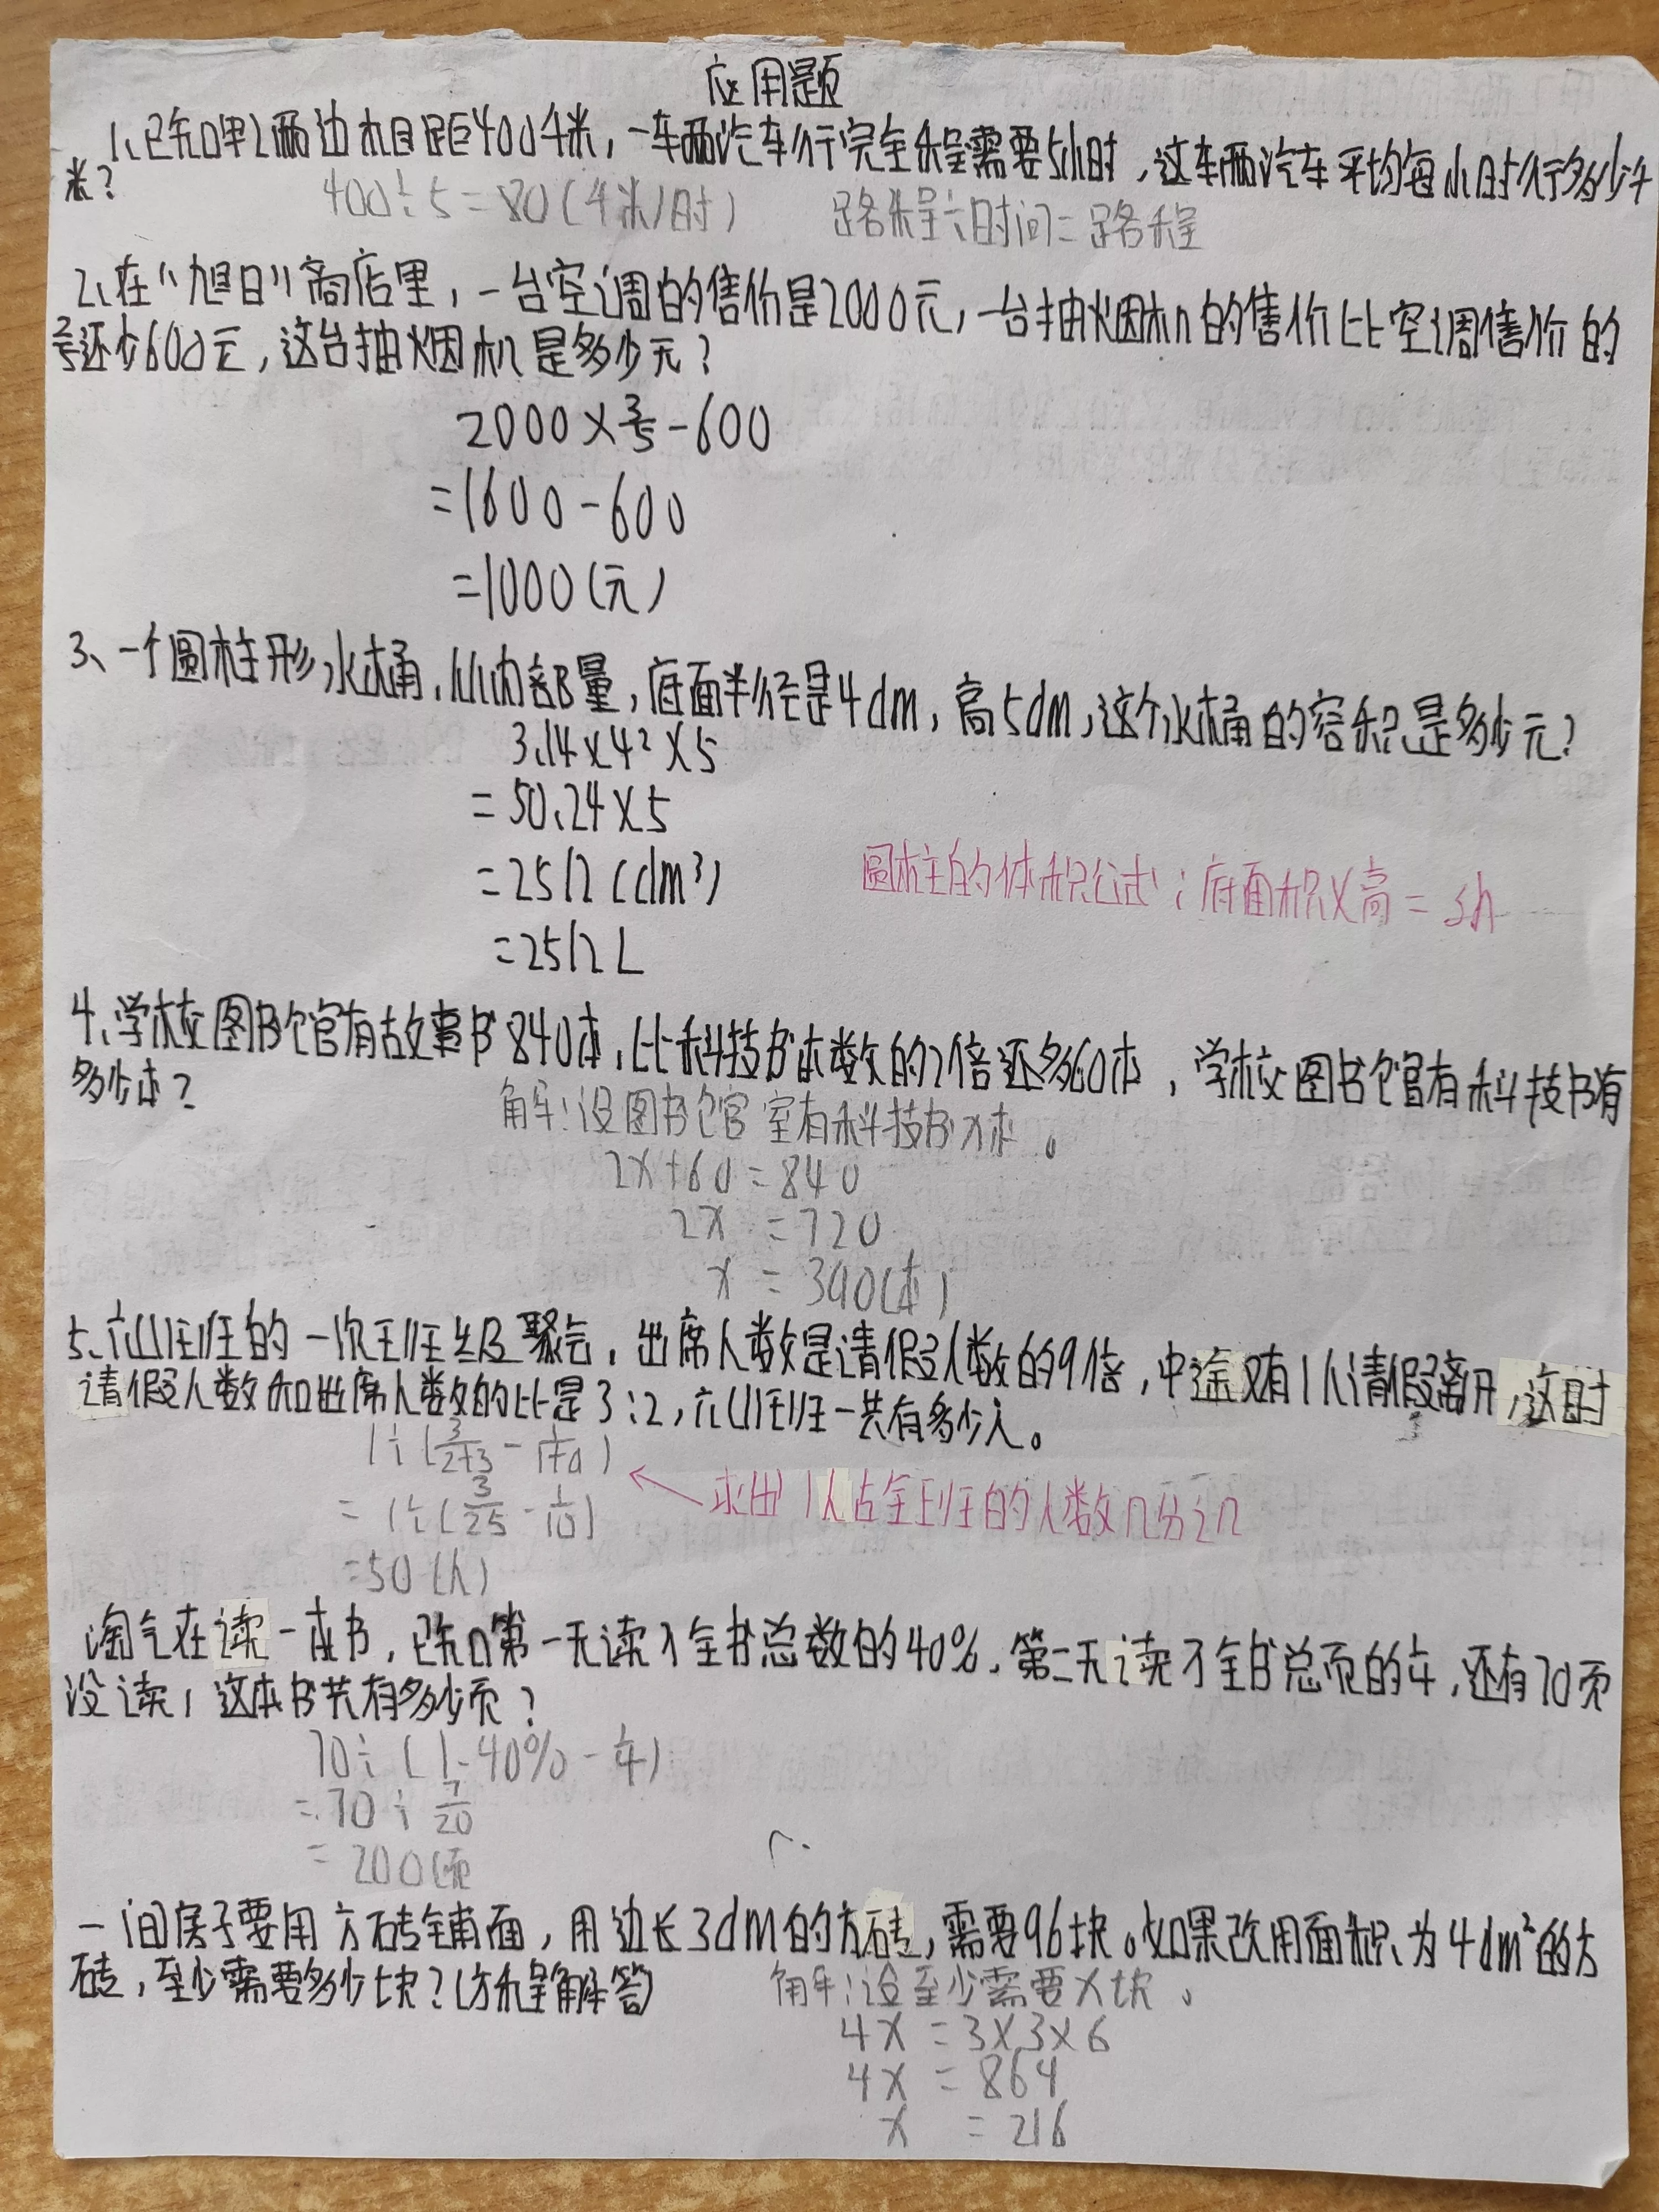 应用题
1、已知甲乙两边相距400千米，一车辆汽车行完全程需要5小时，这车辆汽车平均每小时行多少千
米？
400÷5=80(千米/时) 路程÷时间=路程
2、在“旭日”商店里，一台空调的售价是2000元，一台抽烟机的售价比空调售价的
还少600元，这台抽烟机是多少元？
2000×3/5-600
=1600-600
=1000(元)
3、一个圆柱形水桶，从内部量，底面半径是4dm，高5dm，这个水桶的容积是多少元？
3.14×4²×5
=50.24×5
=2512(dm³)
圆柱的体积公式：底面积×高=sh
=2512L
4、学校图书馆有故事书840本，比科技书本数的2倍还多60本，学校图书馆有科技书有
多少本？
解：设图书馆室有科技书x本。
2x+60=840
2x=720
x=390(本)
5、六(1)班的一次班级聚会，出席人数是请假人数的9倍，中途又有1人请假离开，这时
请假人数和出席人数的比是3:2，六(1)班一共有多少人。
1÷(3/2+3-1/1+9)
求出1人占全班的人数几分之几
=1÷(3/25-1/10)
=50(人)
淘气在读一本书，已知第一天读了全书总数的40%，第二天读了全书总页的1/4，还有70页
没读，这本书共有多少页？
70÷(1-40%-1/4)
=70÷7/20
=200(页
一间房子要用方砖铺面，用边长3dm的方砖，需要96块。如果改用面积为4dm²的方
砖，至少需要多少块？(方程解答)
解：设至少需要x块。
4x=3×3×6
4x=864
x=216